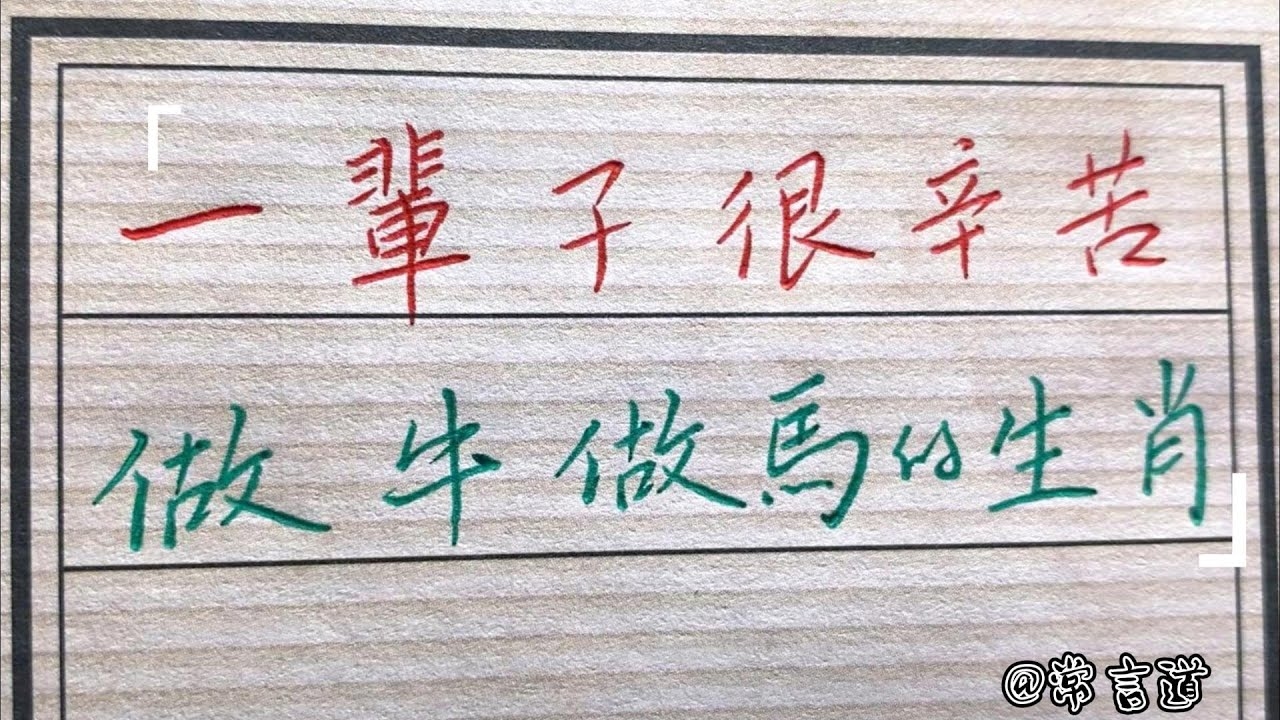 「一輩子很辛苦
做牛做馬的生肖」
@常言道